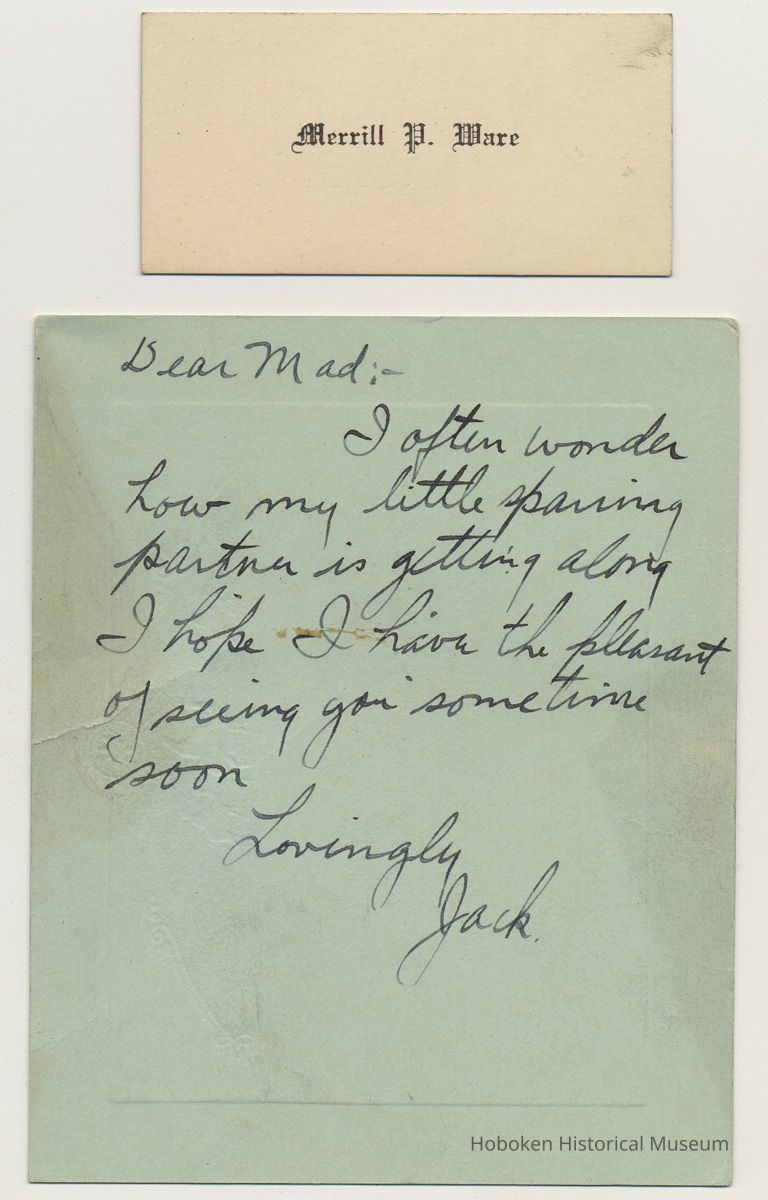 Merrill P. Ware
Dear Mad:-
I often wonder
how my little sparring
partner is getting along
I hope I have the pleasant
of seeing you sometime
soon
Lovingly
Jack.
Hoboken Historical Museum